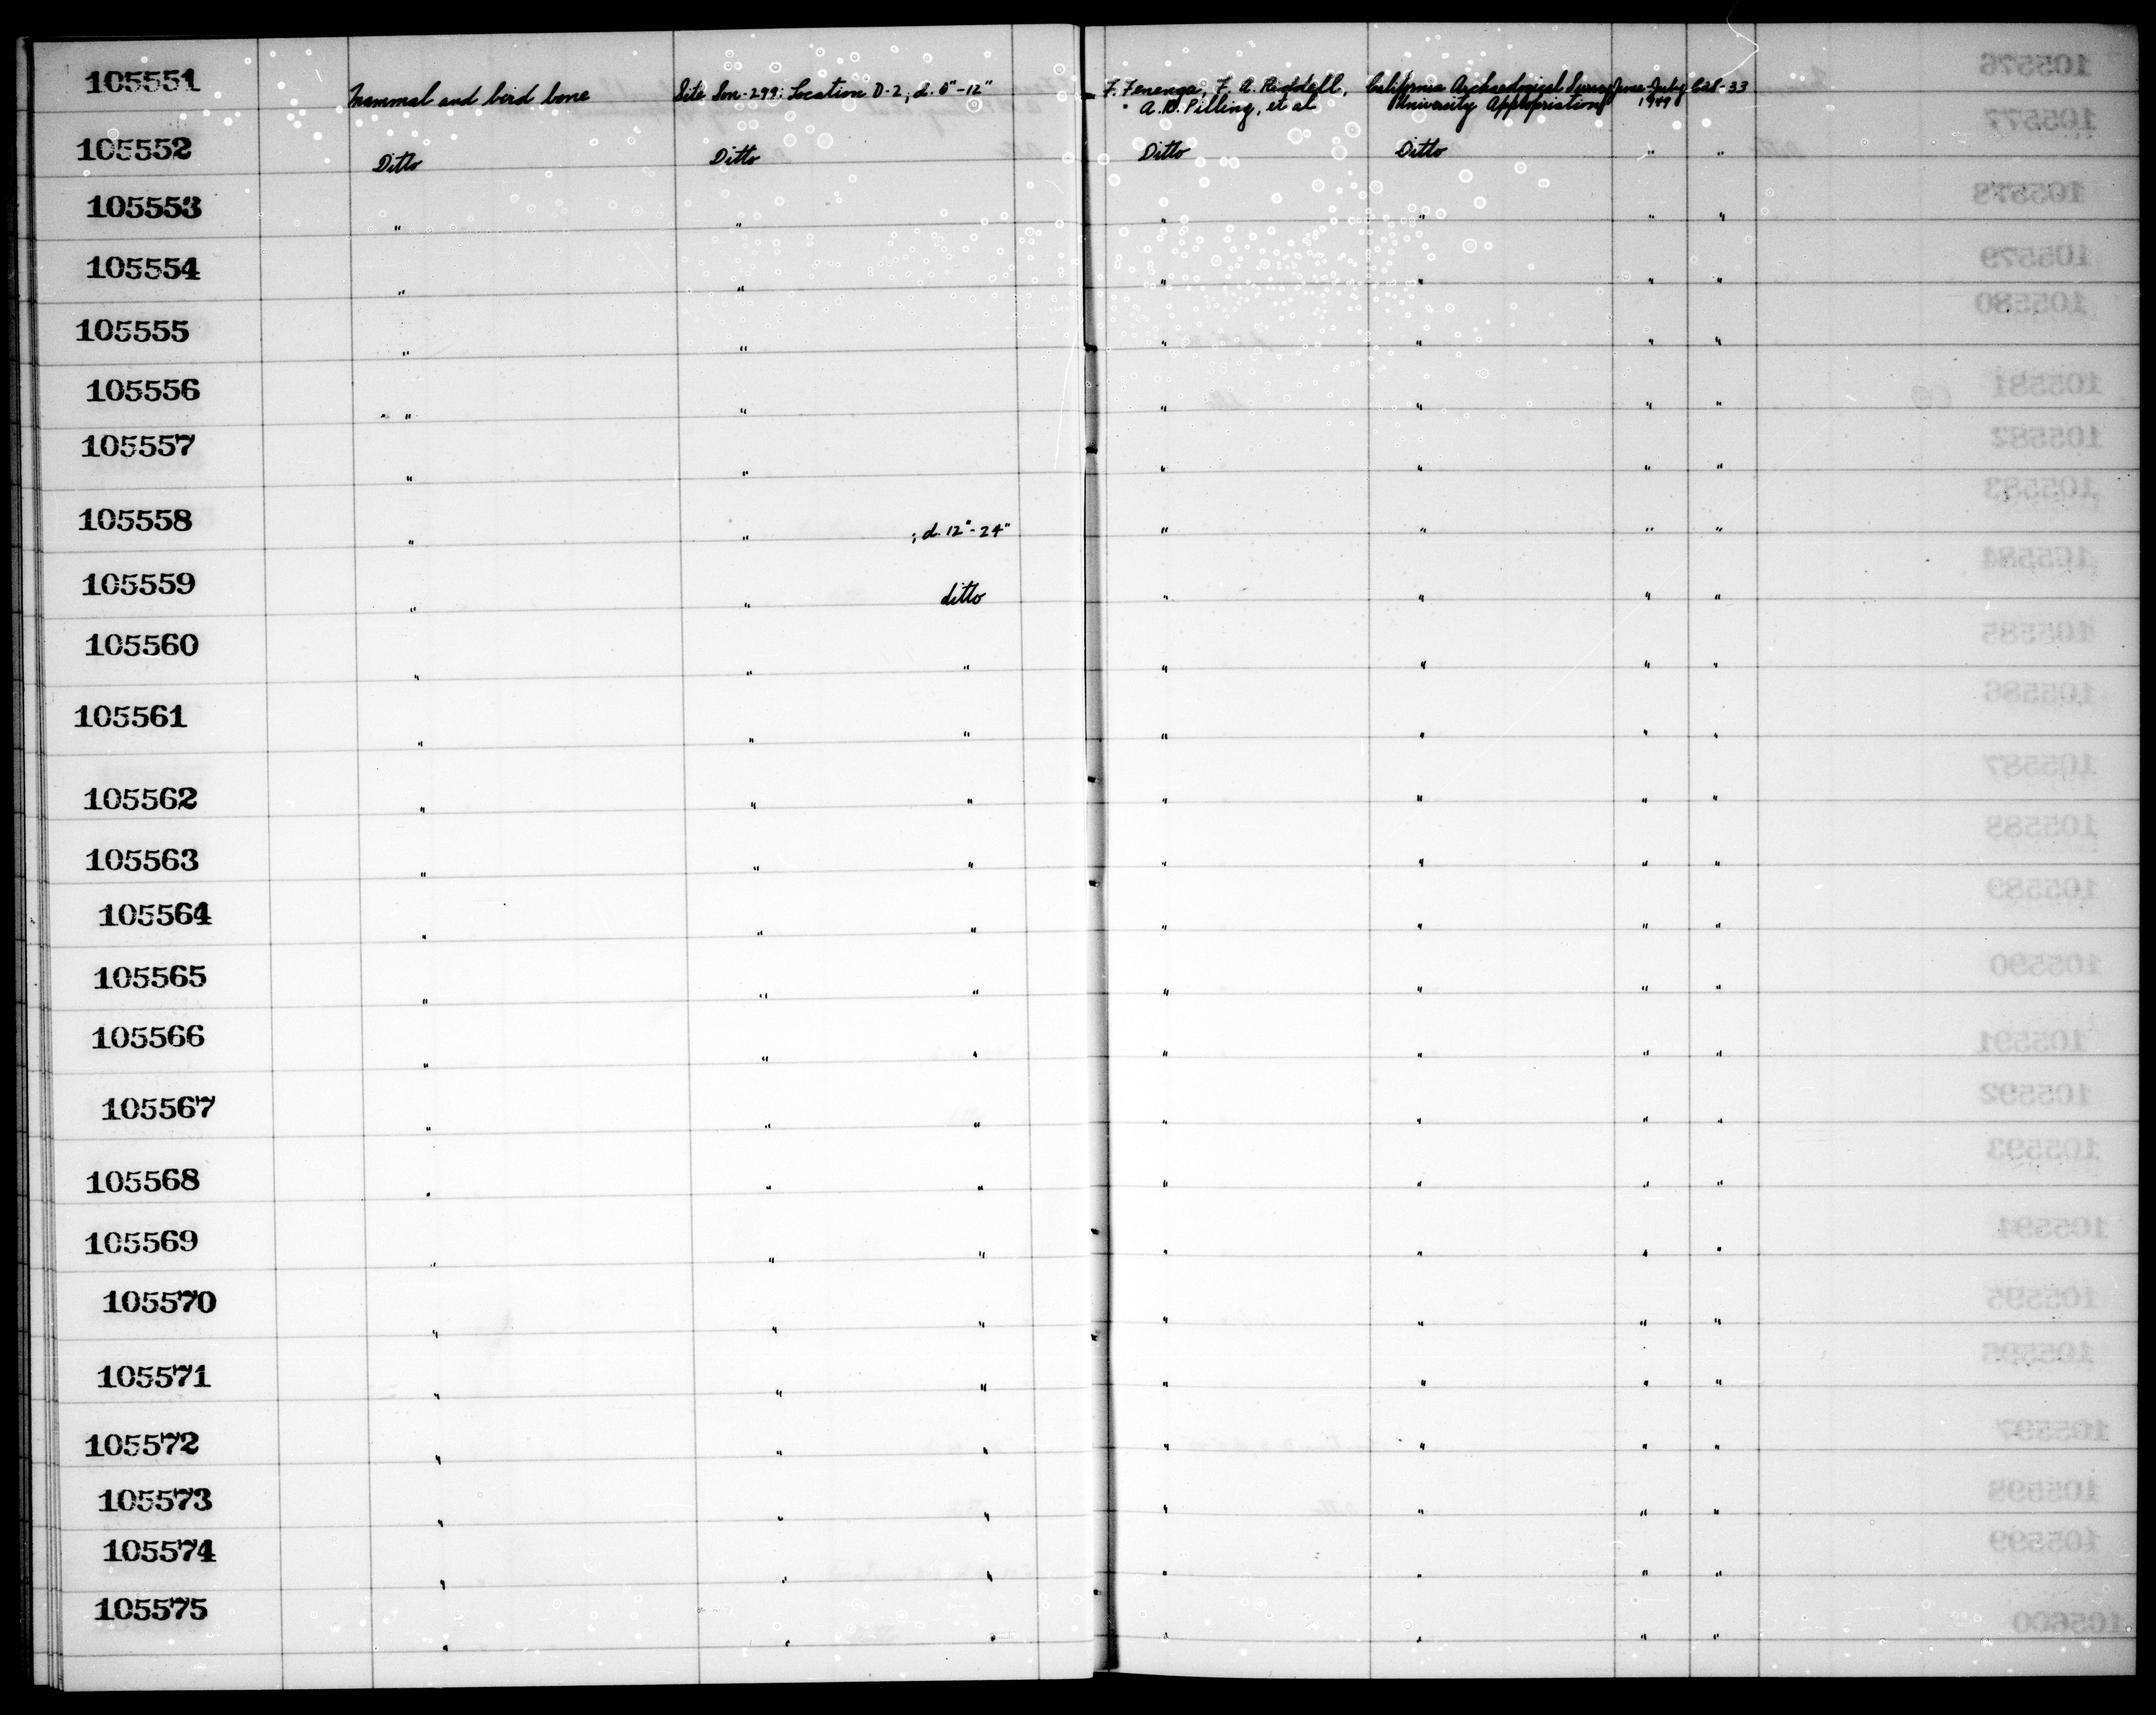 105551 Mammal and bird bone Site Son-299: Location D-2; d. 0"-12" F. Fenenga, F. A. Riddell, California Archaeological Survey June-July 628-33
A. R. Pilling, et al University Appropriation 1949
105552 Ditto Ditto Ditto Ditto " "
105553 " " " " " "
105554 " " " " " "
105555 " " " " " "
105556 " " " " " "
105557 " " " " " "
105558 " " ; d. 12"-24" " " " "
105559 " " ditto " " " "
105560 " " " " " " "
105561 " " " " " " "
105562 " " " " " " "
105563 " " " " " " "
105564 " " " " " " "
105565 " " " " " " "
105566 " " " " " " "
105567 " " " " " " "
105568 " " " " " " "
105569 " " " " " " "
105570 " " " " " " "
105571 " " " " " " "
105572 " " " " " " "
105573 " " " " " " "
105574 " " " " " " "
105575 " " " " " " "